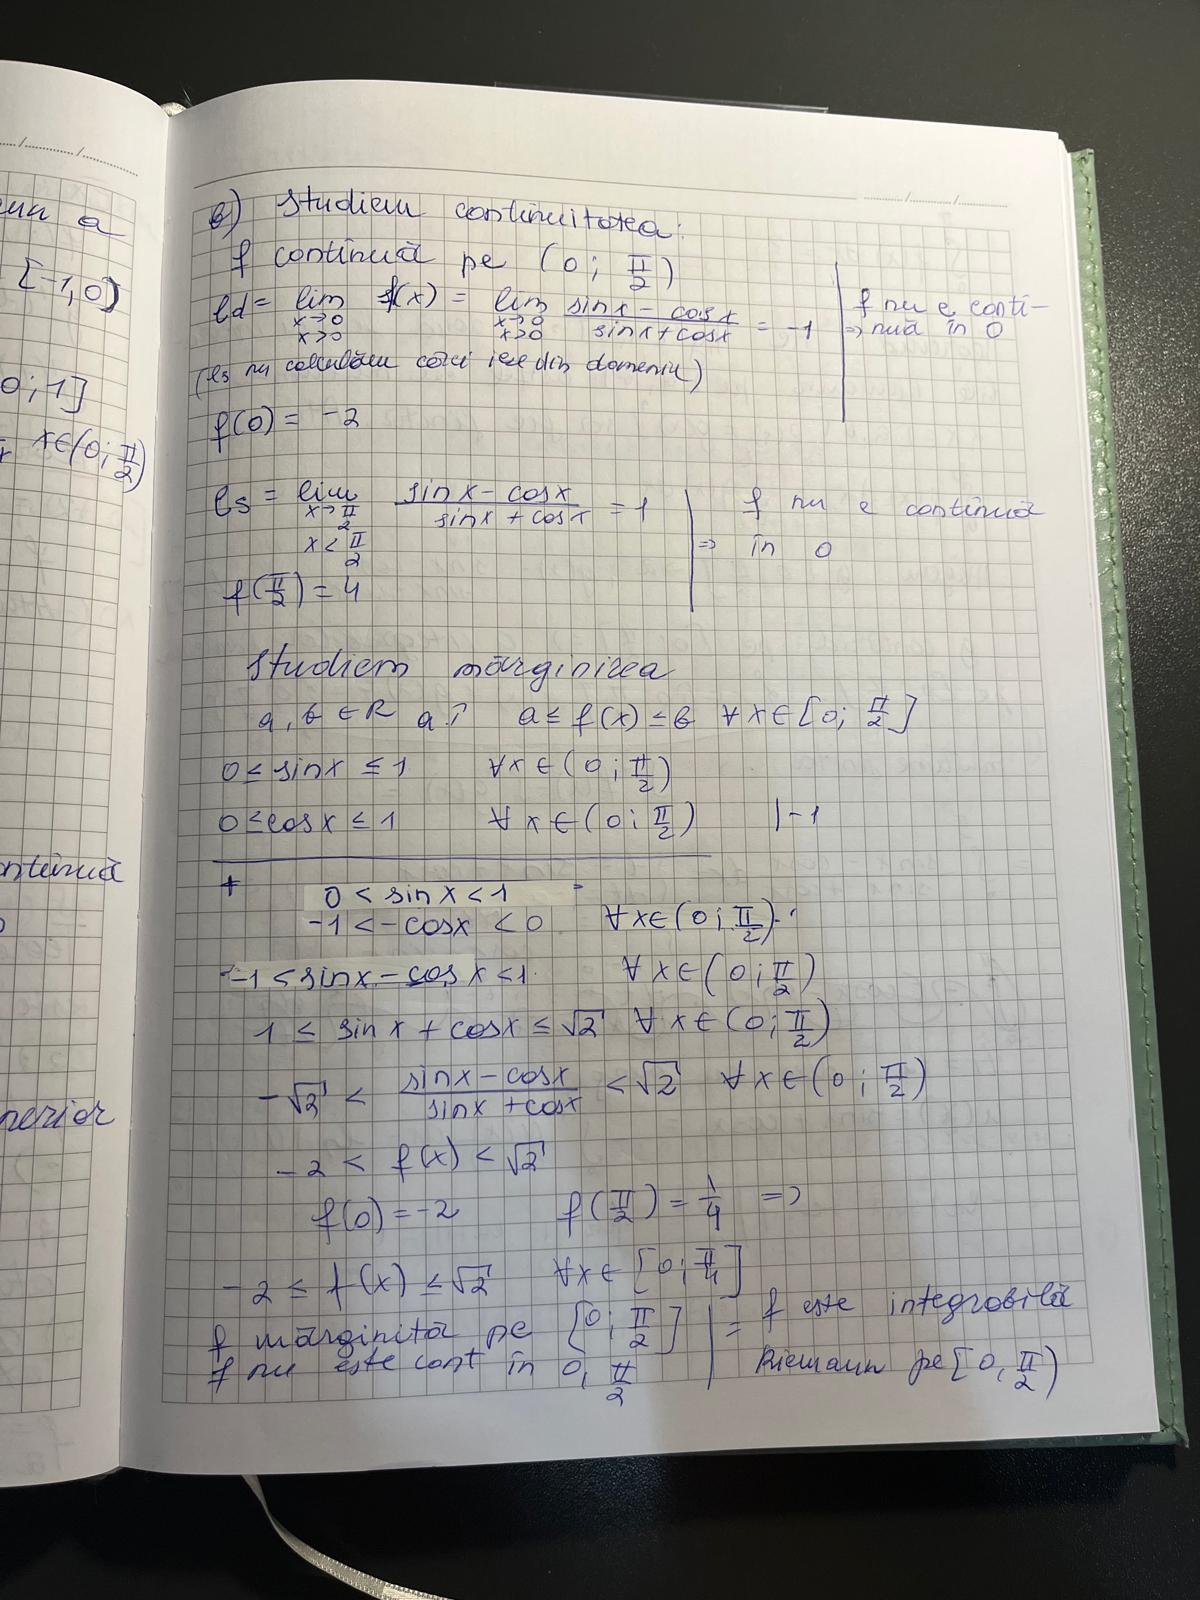 eun a
[-1,0)
0;1]
x∈(0;π/2)
ontinuă
perior
b) Studiem continuitatea:
f continuă pe (0; π/2)
ld = lim x→0 x>0 f(x) = lim x→0 x>0 (sinx - cosx)/(sinx + cosx) = -1 | ⇒ f nu e continuă în 0
(ls nu calculăm căci iese din domeniu)
f(0) = -2
ls = lim x→π/2 x<π/2 (sinx - cosx)/(sinx + cosx) = 1 | ⇒ f nu e continuă în 0
f(π/2) = 4
Studiem mărginirea
a, b ∈ R a.î. a ≤ f(x) ≤ b ∀x∈[0; π/2]
0 ≤ sinx ≤ 1 ∀x∈(0; π/2)
0 ≤ cosx ≤ 1 ∀x∈(0; π/2) |-1
+
0 < sinx < 1
-1 < -cosx < 0 ∀x∈(0; π/2)
-1 < sinx - cosx < 1 ∀x∈(0; π/2)
1 ≤ sinx + cosx ≤ √2 ∀x∈(0; π/2)
-√2 < (sinx - cosx)/(sinx + cosx) < √2 ∀x∈(0; π/2)
-2 < f(x) < √2
f(0) = -2 f(π/2) = 1/4 =>
-2 ≤ f(x) ≤ √2 ∀x∈[0; π/4]
f mărginită pe [0; π/2] | = f este integrabilă
f nu este cont în 0, π/2 | Riemann pe [0, π/2)